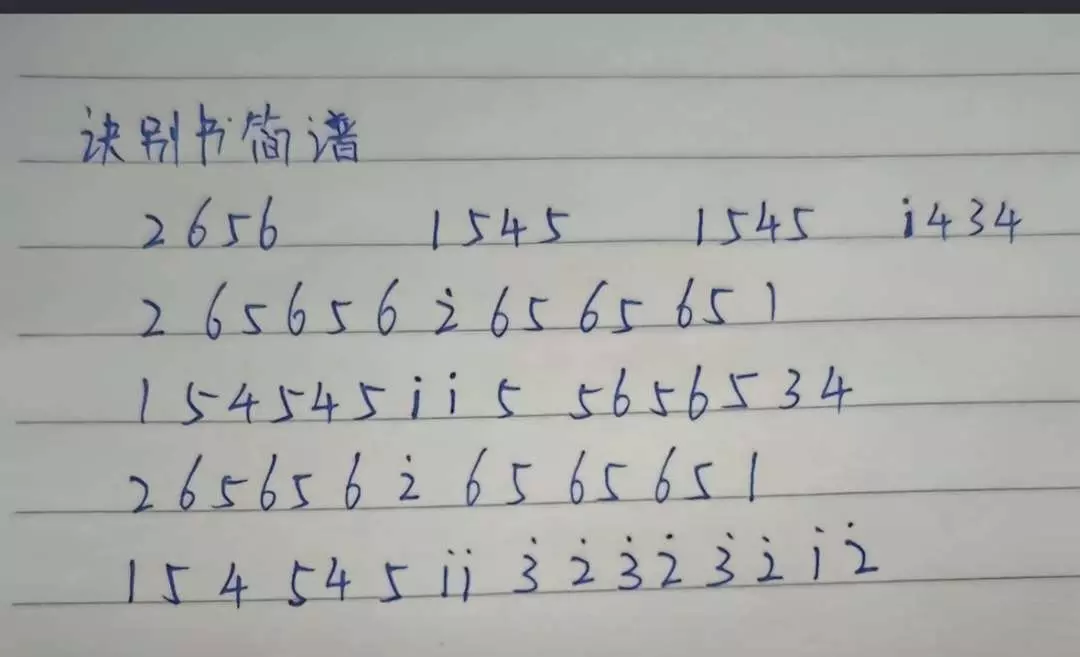 诀别书简谱
2656 1545 1545 i434
265656 2̇ 65 65 651
154545 i i 5 5656534
265656 2̇ 65 65651
154 545 i i 3̇ 2̇ 3̇ 2̇ 3̇ 2̇ i 2̇